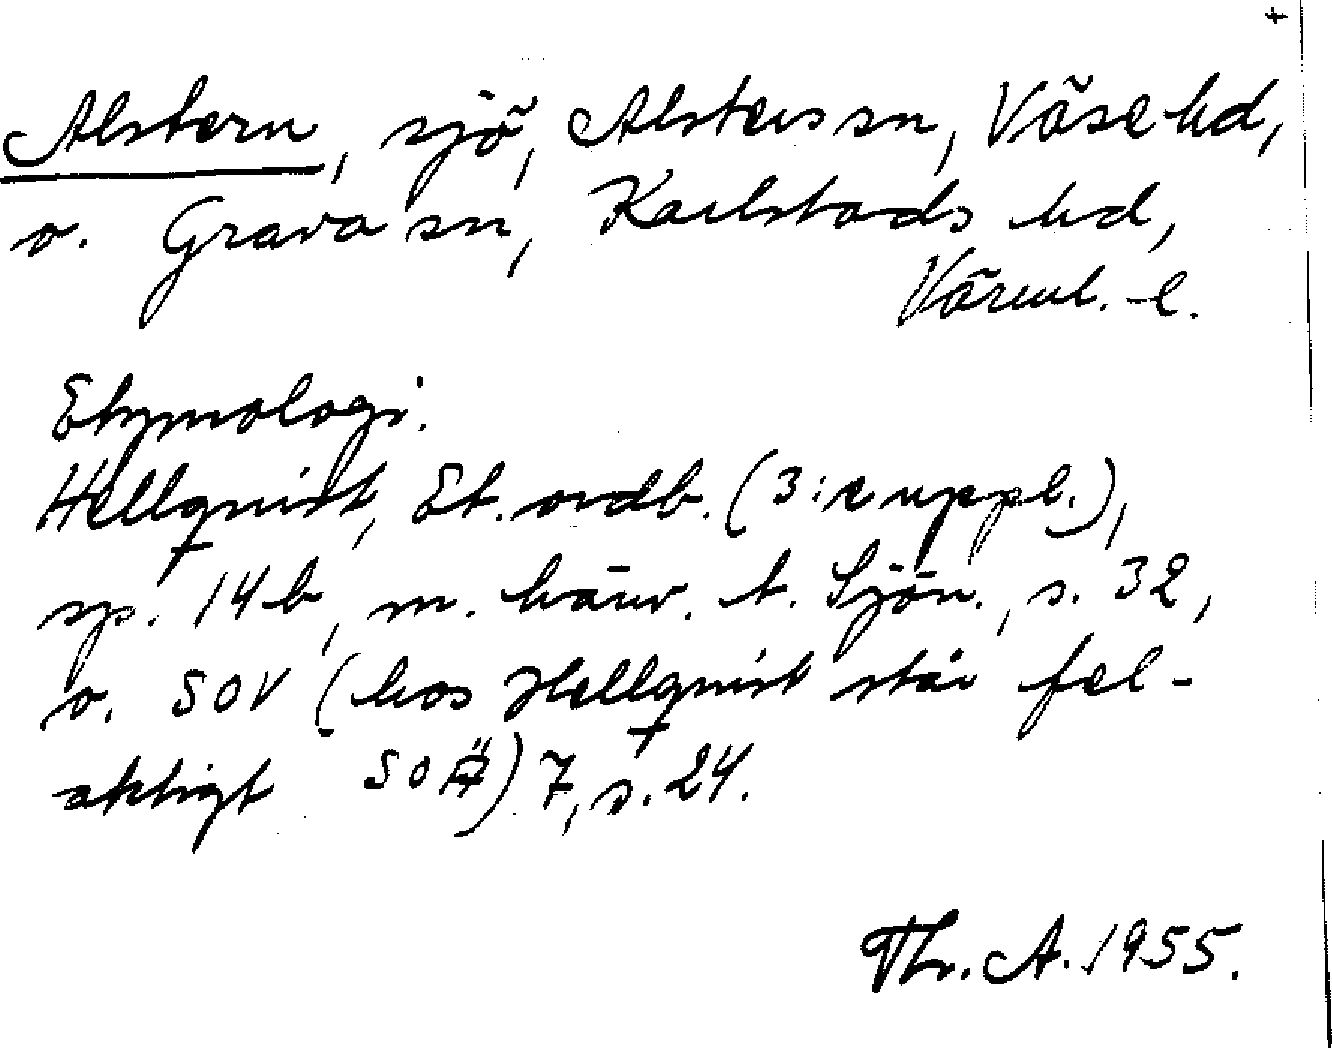 Alstern, sjö, Alsters sn, Väse hd,
o. Grava sn, Karlstads hd,
Värml. l.
Etymologi.
Hellquist, Et. ordb. (3:e uppl.),
sp. 14 b, m. hänv. t. Sjön., s. 32,
o. SOV (hos Hellquist står fel-
aktigt SOÄ) 7, s. 24.
Thr. A. 1955.